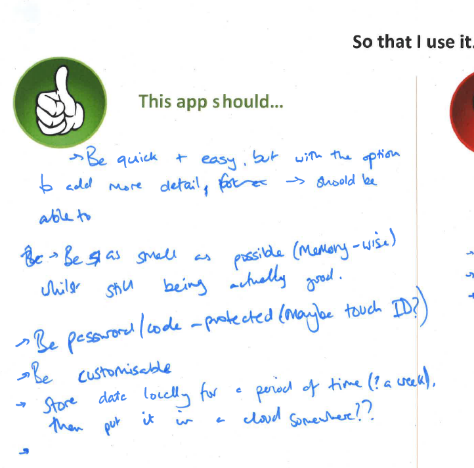 So that I use it.
This app should...
→ Be quick + easy, but with the option
to add more detail, → should be
able to
Be → Be as small as possible (Memory-wise)
whilst still being actually good.
→ Be password/code-protected (Maybe touch ID?)
→ Be customisable
→ Store data locally for a period of time (? a week),
then put it in a cloud somewhere??
→